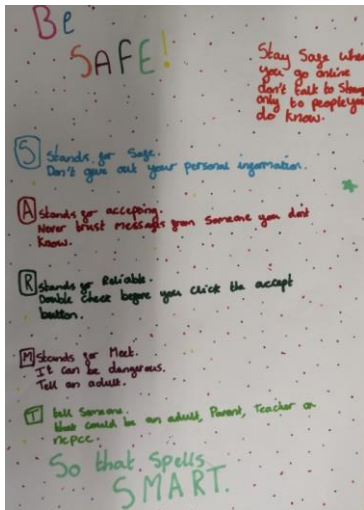 Be
SAFE!
Stay Safe when
you go online
don't talk to
only to people you
do know.
S Stands for Safe.
Don't give out your personal information.
A Stands for accepting.
Never trust messages from Someone you don't
Know.
R Stands for Reliable.
Double check before you click the accept
button.
M Stands for Meet.
It can be dangerous.
Tell an adult.
T tell Someone.
that could be an adult, Parent, Teacher or
ncpcc.
So that Spells
SMART.